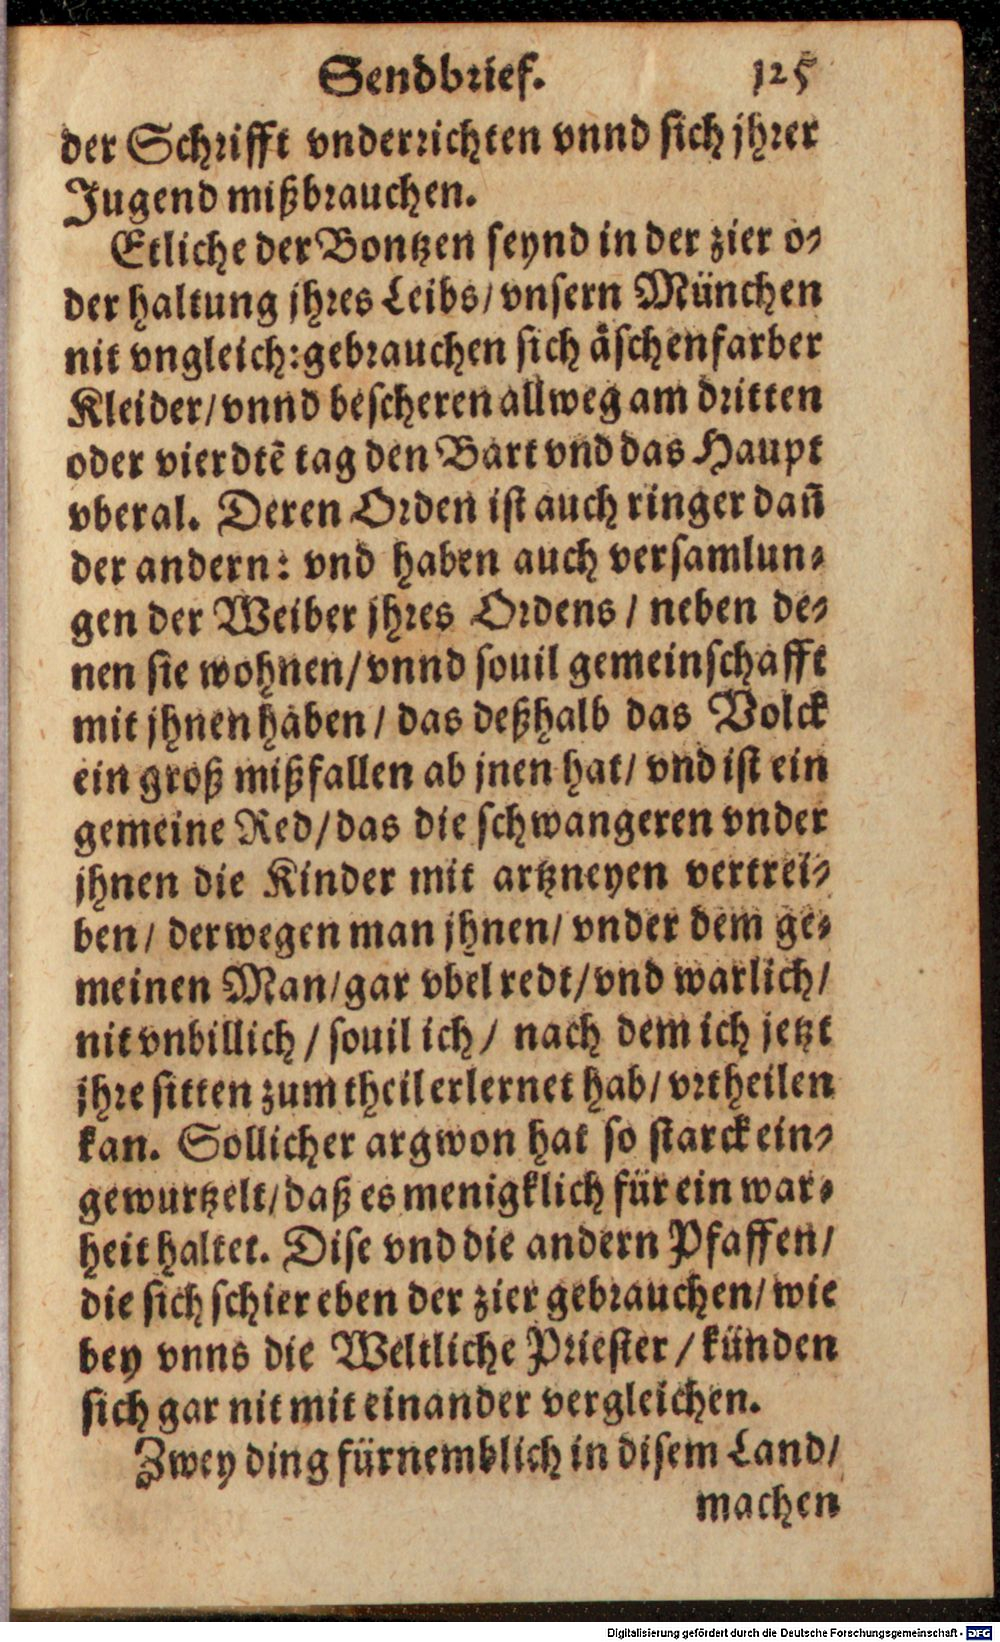 Sendbrief. 125
der Schrifft vnderrichten vnnd sich jhrer
Jugend mißbrauchen.
Etliche der Bontzen seynd in der zier o-
der haltung jhres Leibs/ vnsern München
nit vngleich: gebrauchen sich äschenfarber
Kleider/ vnnd bescheren allweg am dritten
oder vierdtẽ tag den Bart vnd das Haupt
vberal. Deren Orden ist auch ringer dañ
der andern: vnd haben auch versamlun-
gen der Weiber jhres Ordens / neben de-
nen sie wohnen/ vnnd souil gemeinschafft
mit jhnen haben / das deßhalb das Volck
ein groß mißfallen ab jnen hat/ vnd ist ein
gemeine Red/ das die schwangeren vnder
jhnen die Kinder mit artzneyen vertrei-
ben/ derwegen man jhnen/ vnder dem ge-
meinen Man/ gar vbel redt/ vnd warlich/
nit vnbillich / souil ich / nach dem ich jetzt
jhre sitten zum theil erlernet hab/ vrtheilen
kan. Sollicher argwon hat so starck ein-
gewurtzelt/ daß es menigklich für ein war-
heit haltet. Dise vnd die andern Pfaffen/
die sich schier eben der zier gebrauchen/ wie
bey vnns die Weltliche Priester / künden
sich gar nit mit einander vergleichen.
Zwey ding fürnemblich in disem Land/
machen
Digitalisierung gefördert durch die Deutsche Forschungsgemeinschaft - DFG